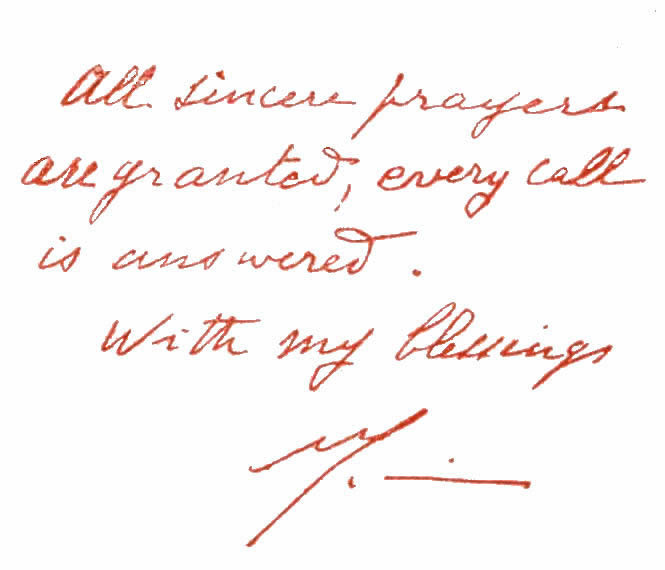 All sincere prayers
are granted, every call
is answered.
With my blessings